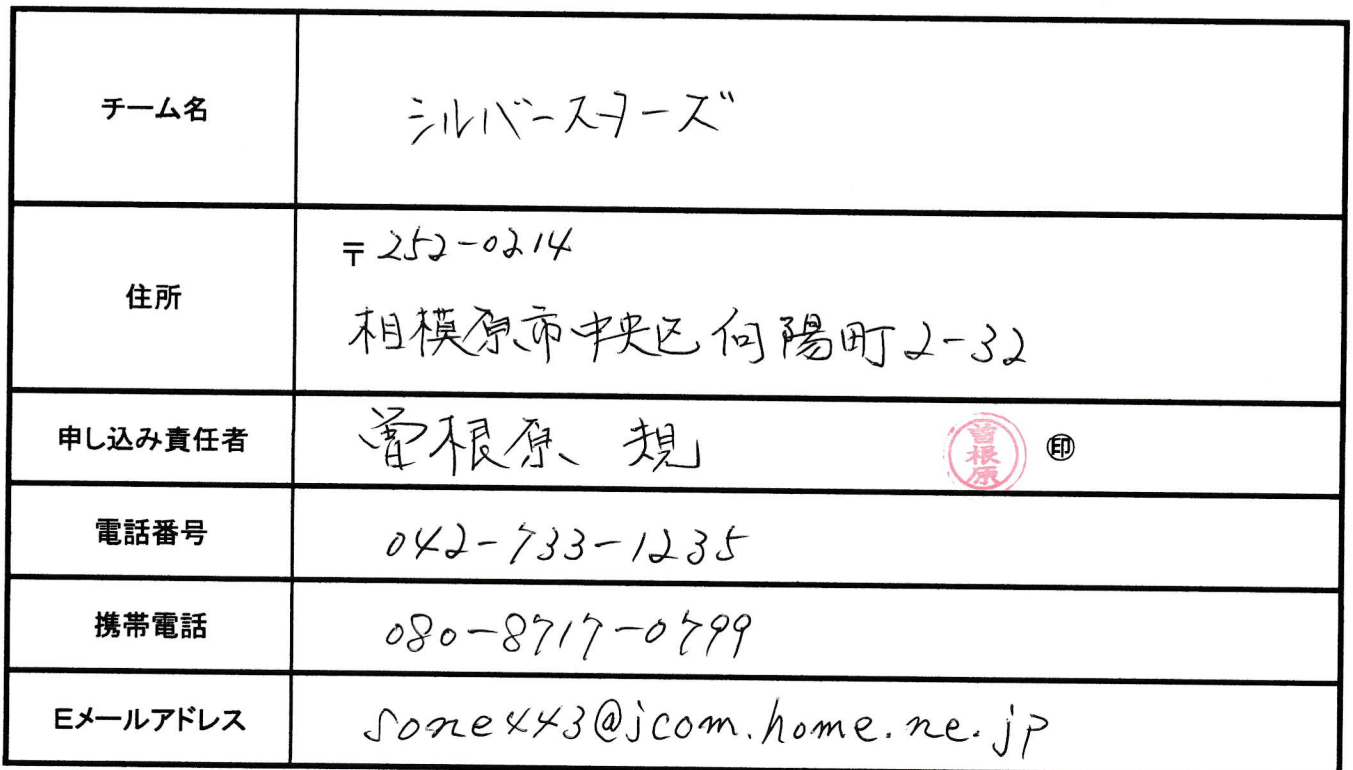 チーム名
シルバースターズ
住所
〒252-0214
相模原市中央区向陽町2-32
申し込み責任者
曽根原 規
曽根原
㊞
電話番号
042-733-1235
携帯電話
080-8717-0799
Eメールアドレス
sone443@jcom.home.ne.jp